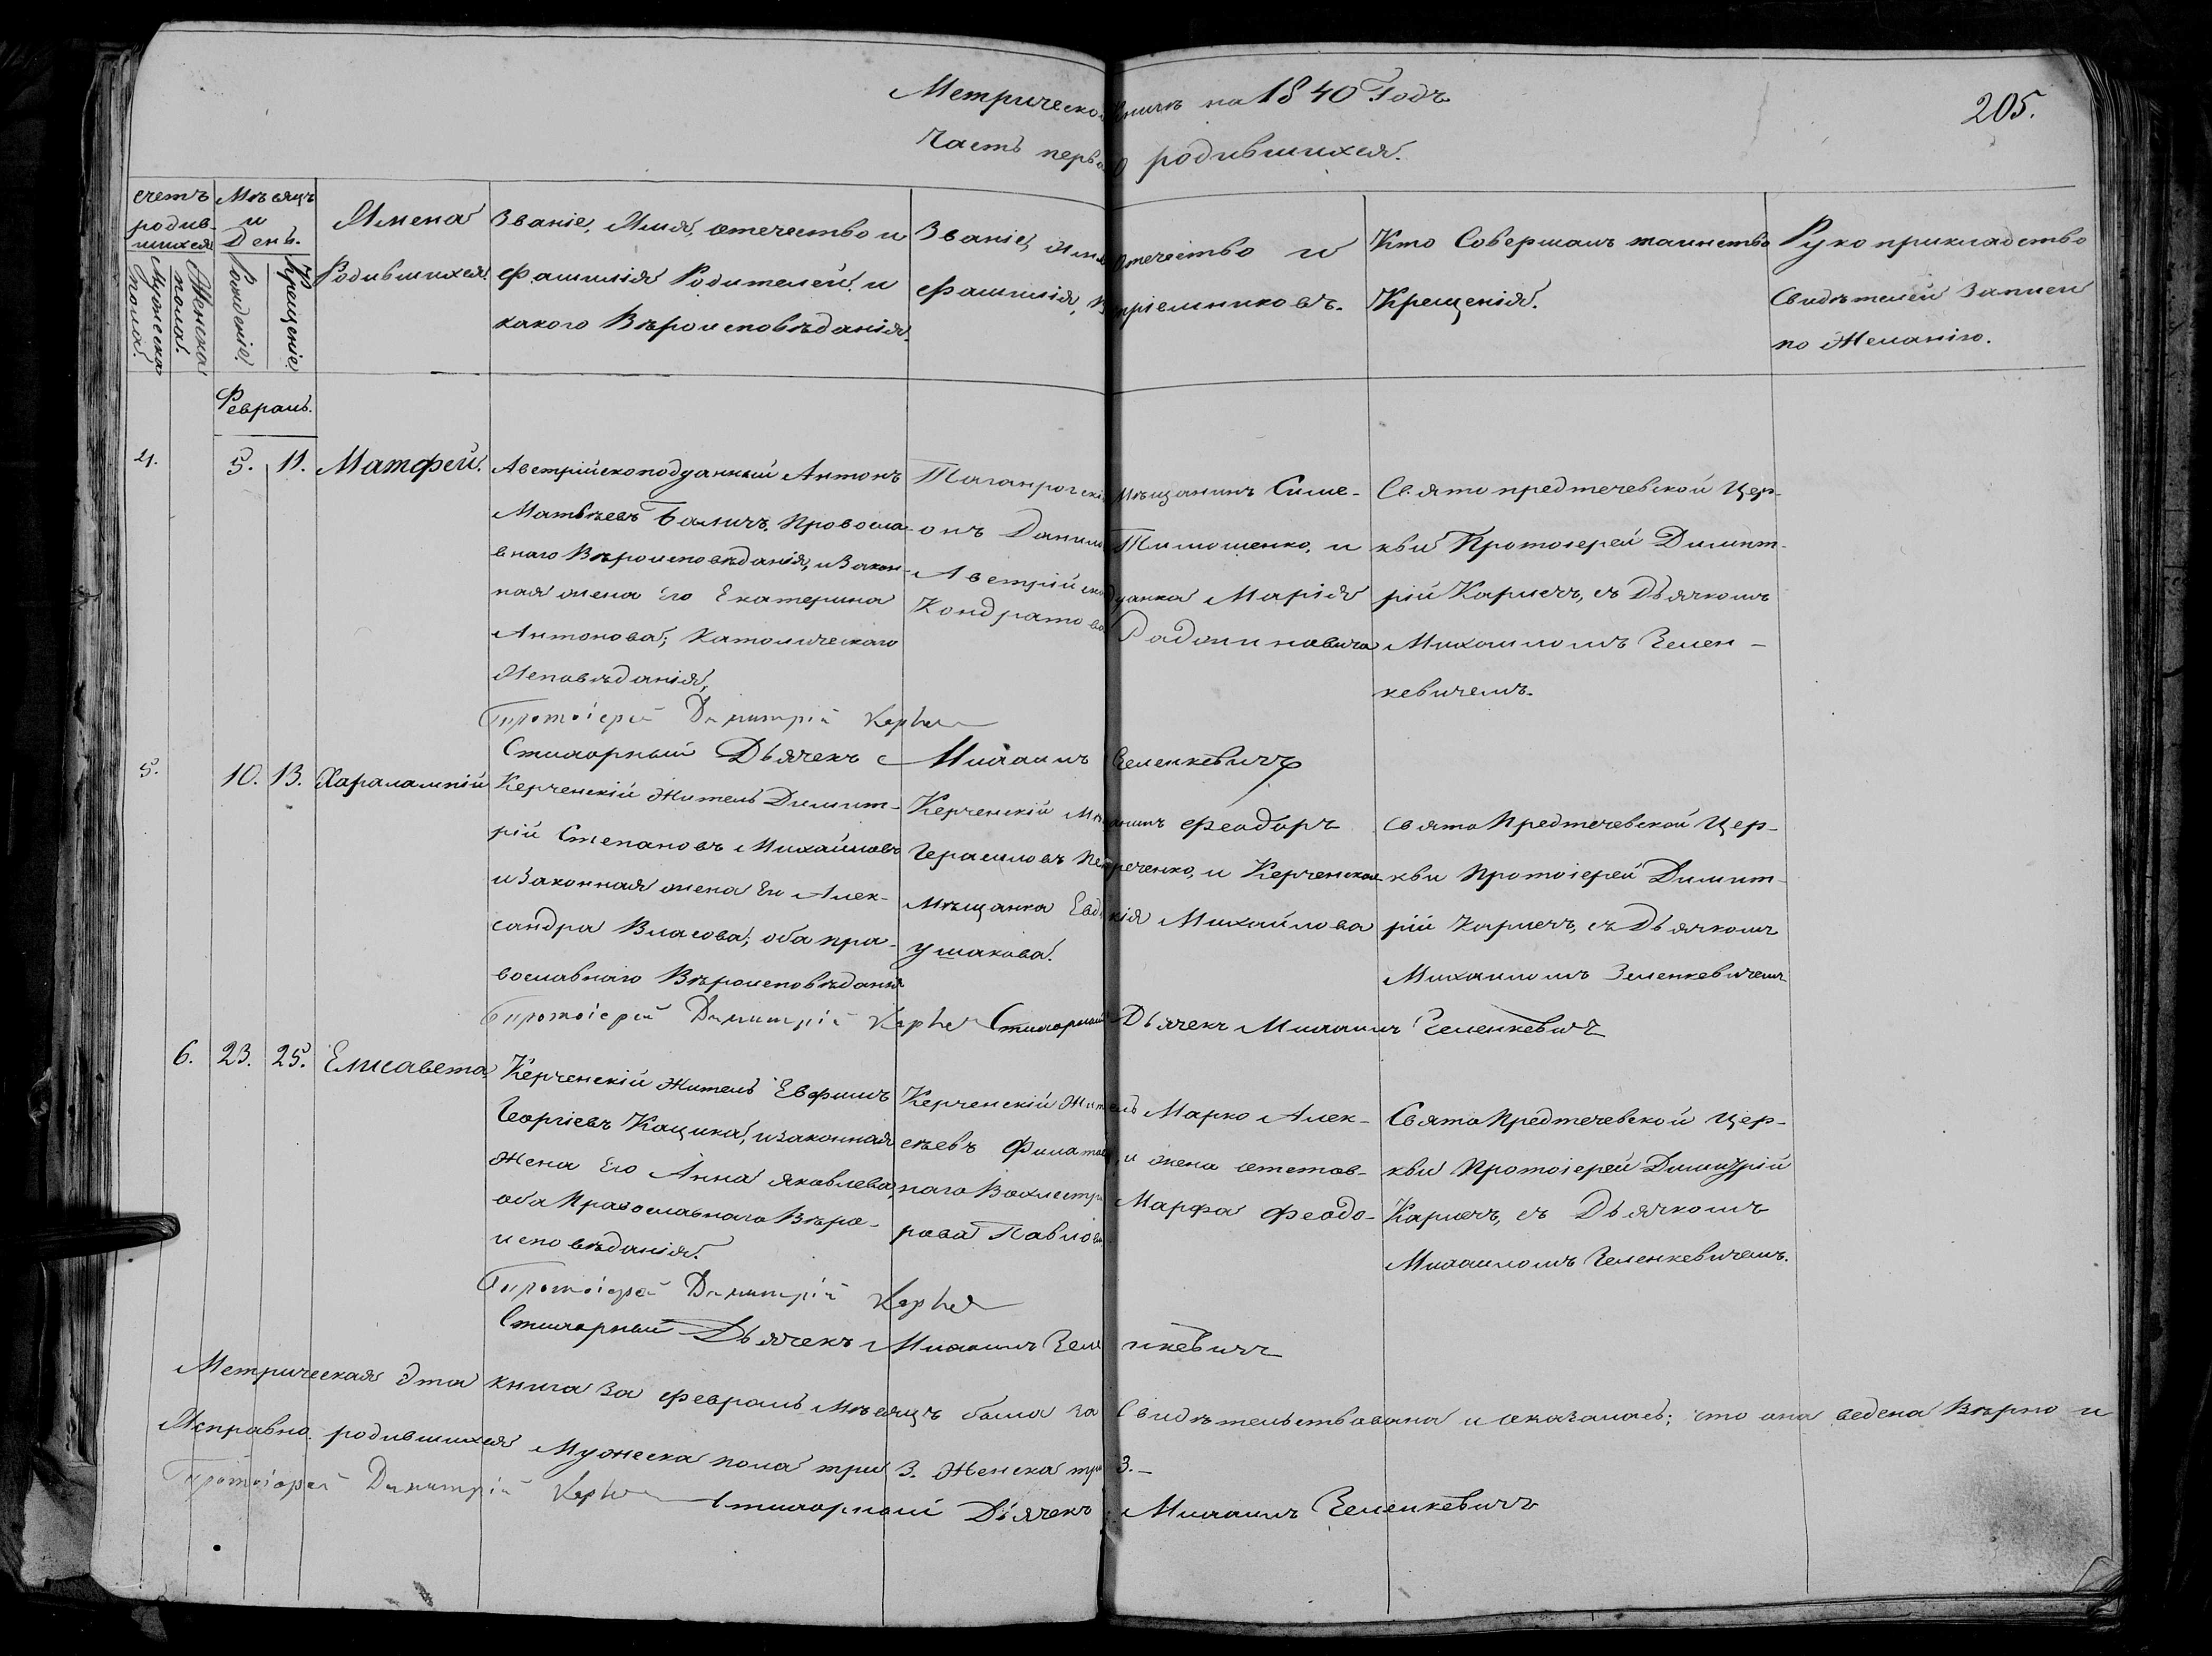 Метрической Книги на 1840 Годъ
205.
Часть первая о родившихся.
счетъ родив-шихся
Мужеска пола.
Женска пола.
Мѣсяцъ и День.
Рожденіе.
Крещеніе.
Имена
Родившихся.
Званіе, Имя, отечество и
фамилія Родителей и
какого Вѣроисповѣданія.
Званіе, имя отечество и
фамилія, воспріемниковъ.
Кто Совершалъ таинство
Крещенія.
Рукоприкладство
Свидѣтелей Записи
по Желанію.
Февраль.
4. 5. 11. Матфей.
Австрійскоподданный Антонъ
Матвѣевъ Баличъ, Провосла-
внаго Вѣроисповѣданія, и Закон-
ная жена Его Екатерина
Антонова; Католическаго
Исповѣданія,
Таганрогскій мѣщанинъ Симе-
онъ Данилов Тимошенко, и
Австрійско дданка Марія
Кондратова Радониновича
Свято предтечевской Цер-
кви Протоіерей Димит-
рій Карпечъ, съ Дьячкомъ
Михаиломъ Зелен-
кевичемъ.
Протоіерей Димитрій
Стихарный Дьячекъ Михаилъ Зеленкевичъ
5. 10. 13. Харалампій
Керченскій житель Димит-
рій Степановъ Михайловъ
и Законная жена Его Алек-
сандра Власова; оба пра-
вославнаго Вѣроисповѣданія
Керченскій Мѣщанинъ Феодоръ
Герасимовъ Петреченко, и Керченская
Мѣщанка Евдокія Михайлова
Ушакова.
Свято Предтечевской Цер-
кви Протоіерей Димит-
рій Карпечъ, съ Дьячкомъ
Михаиломъ Зеленкевичемъ
Протоіерей Димитрій Стихарный Дьячекъ Михаилъ Зеленкевичъ
6. 23. 25. Елисавета
Керченскій житель Евфимъ
Георгіевъ Кацика, и законная
жена Его Анна Яковлева,
оба Православнаго Вѣро-
исповѣданія.
Керченскій Житель Марко Алек-
сѣевъ Филатов, и жена отстав-
наго Вахмистра Марфа Феодо-
рова Павлова
Свято Предтечевской Цер-
кви Протоіерей Димитрій
Карпечъ, съ Дьячкомъ
Михаиломъ Зеленкевичемъ.
Протоіерей Димитрій
Стихарный Дьячекъ Михаилъ Зеленкевичъ
Метрическая Эта книга За февраль Мѣсяцъ была За Свидѣтельствована и оказалась; что она ведена Вѣрно и
Исправно. родившихся Мужеска пола три 3. Женска три 3.-
Протоіерей Димитрій Стихарный Дьячекъ Михаилъ Зеленкевичъ